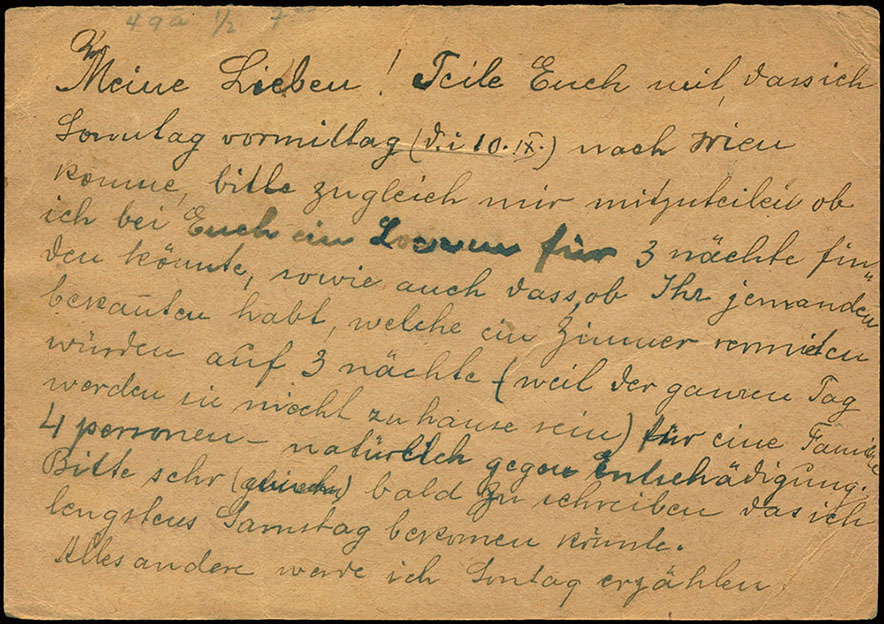 49a 1/2 7
Meine Lieben! Teile Euch mit, dass ich
Sonntag vormittag (d.i 10.IX.) nach Wien
komme, bitte zugleich mir mitzuteilen ob
ich bei Euch ein für 3 nächte fin"
den könnte, sowie auch dass, ob Ihr jemanden
bekañten habt, welche ein Zimmer vermieten
würden auf 3 nächte (weil der ganzen Tag
werden sie niecht zu hause sein) für eine Familie
4 personen - natürlich gegen Entschädigung.
Bitte sehr (gleich) bald zu schreiben das ich
lengstens Samstag bekomen könnte.
Alles andere werde ich Sontag erzählen.